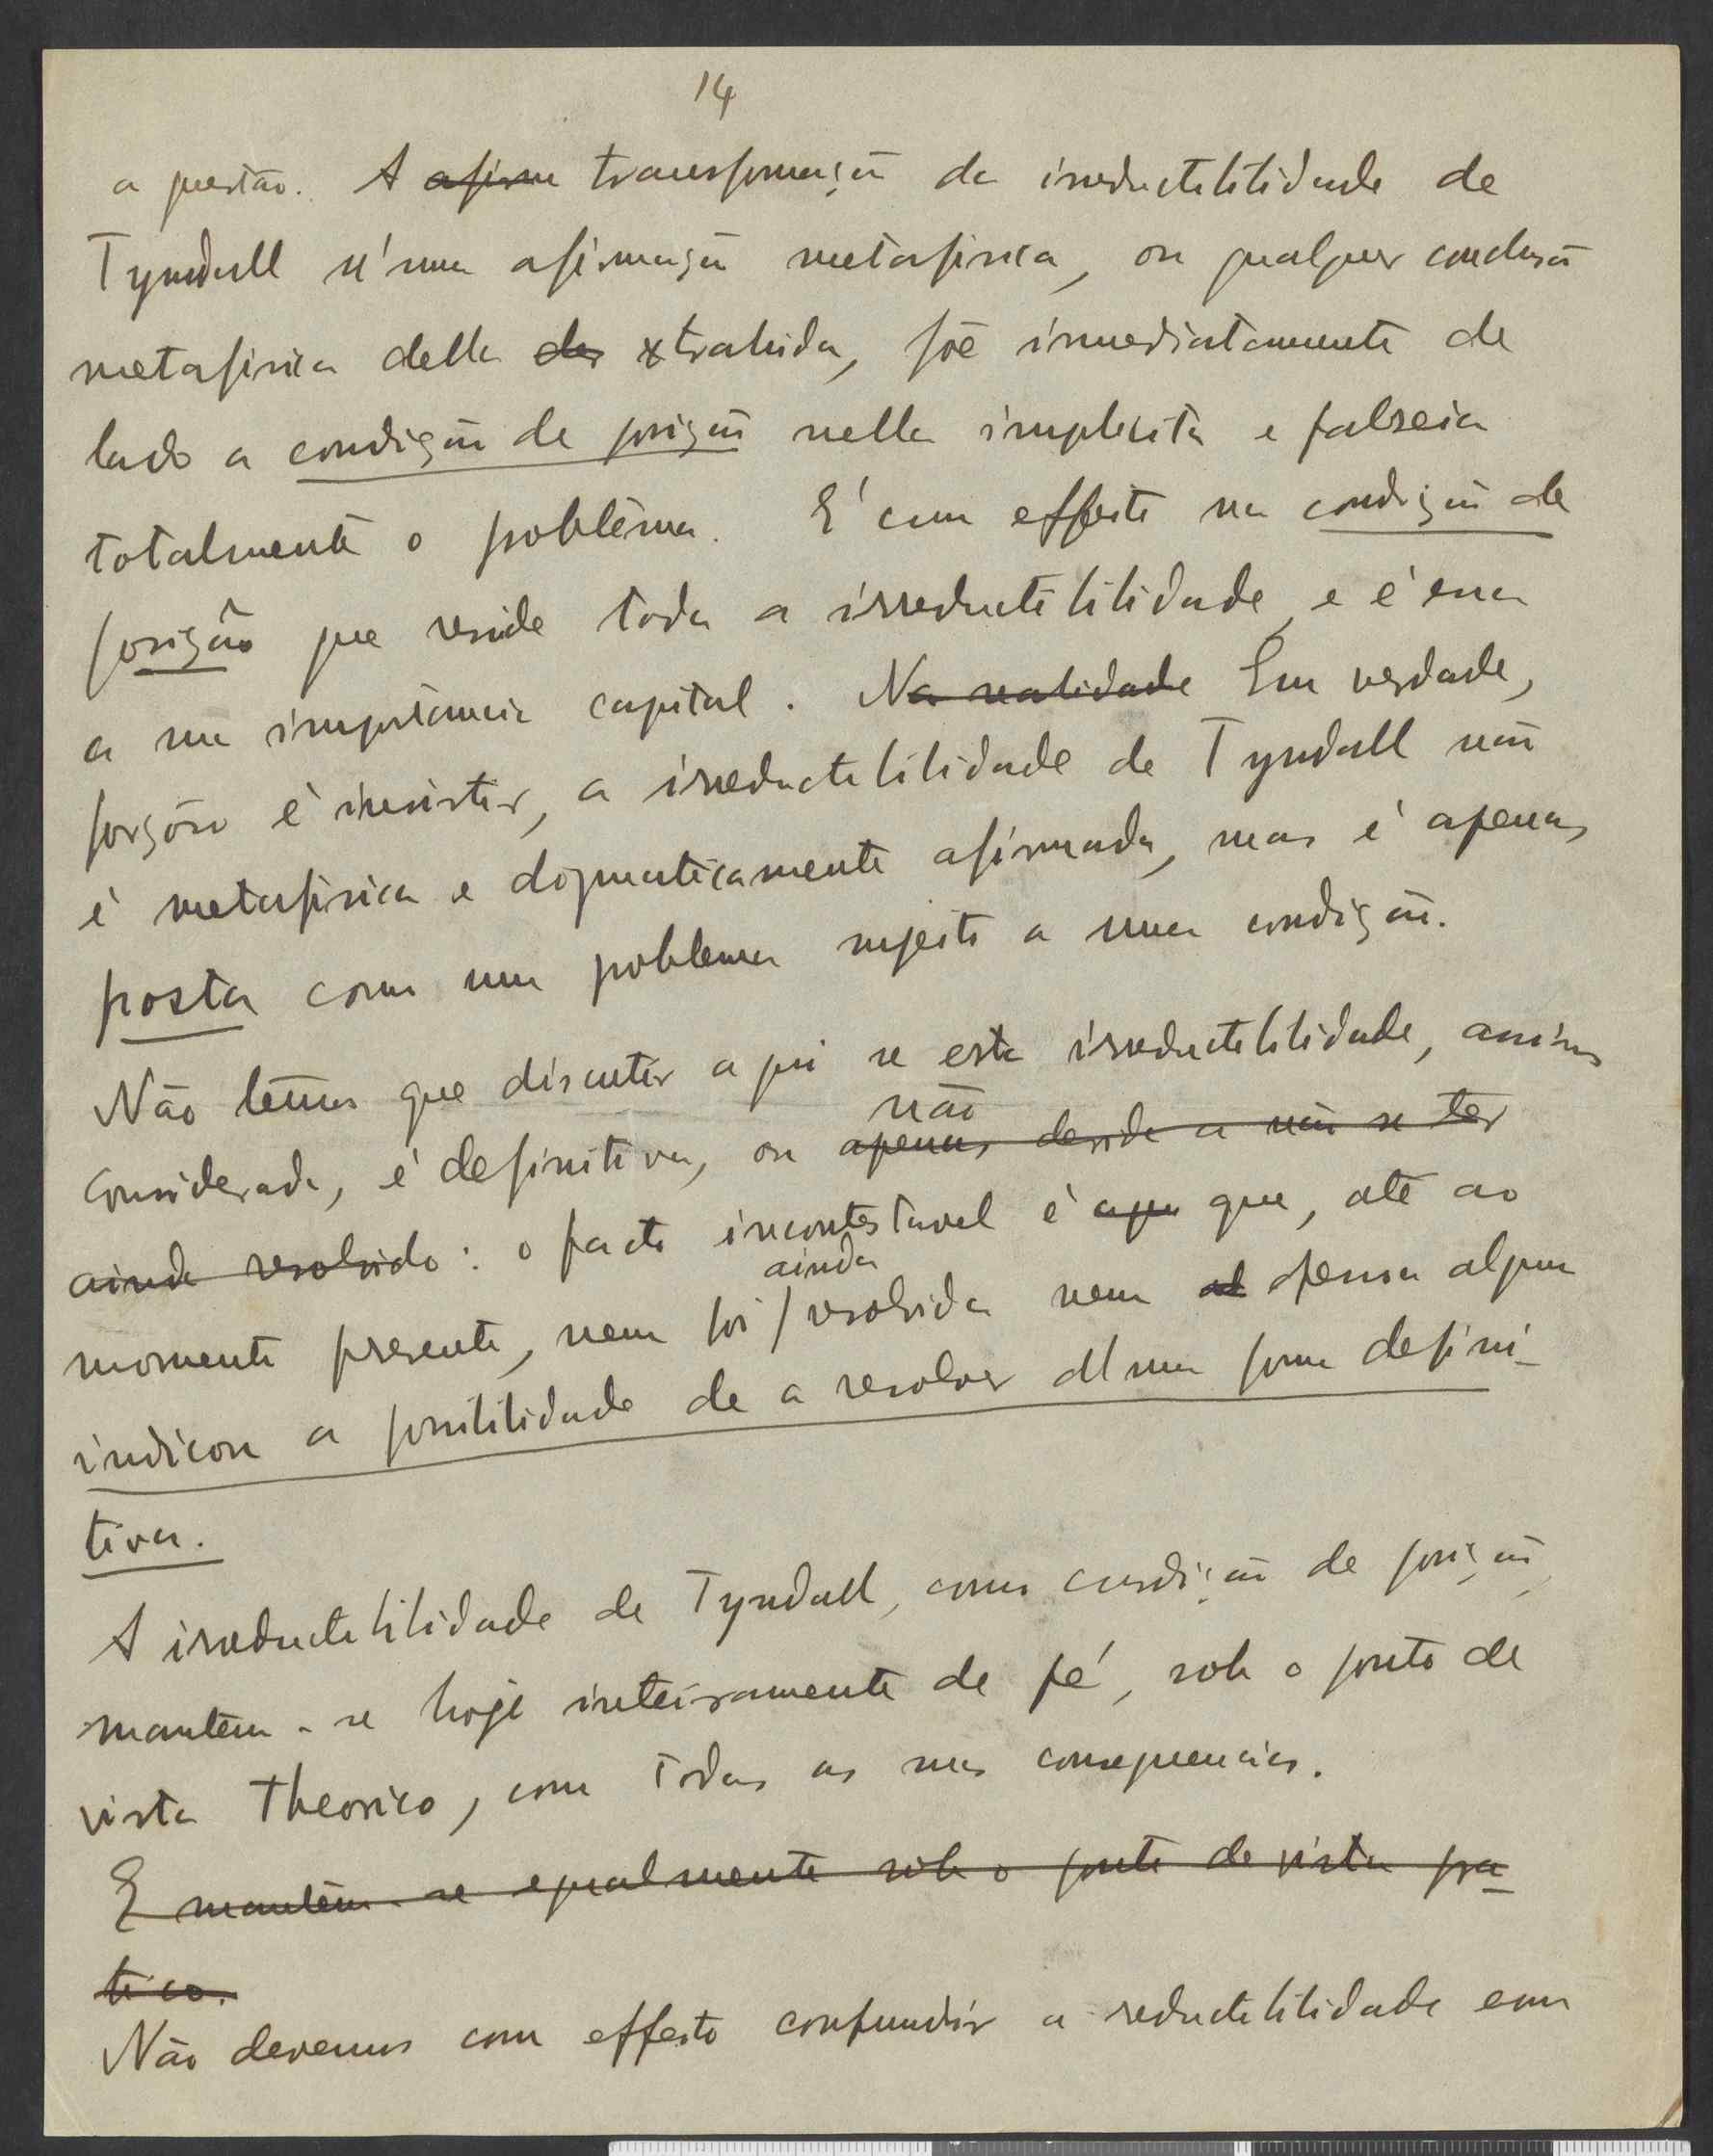 14
a questão. A ~~afirm~~ transformação da irreductibilidade de
Tyndall n'uma afirmação metafisica, ou qualquer conclusão
metafisica della ~~des~~ extrahida, põe immediatamente de
lado a condição de posição nella implicita e falseia
totalmente o problêma. É com effeito na condição de
posição que reside toda a irreductibilidade, e é essa
a sua importancia capital. ~~Na realidade~~ Em verdade,
forçoso é insistir, a irreductibilidade de Tyndall não
é metafisica e dogmaticamente afirmada, mas é apenas
posta como um problema sujeito a uma condição.
Não têmos que discutir aqui se esta irreductibilidade, assim
não
considerada, é definitiva, ou ~~apenas devida a não se ter~~
~~ainda resolvido~~: o facto incontestavel é ~~apen~~ que, até ao
ainda
momento presente, nem foi / resolvida nem ~~al~~ pessoa alguma
indicou a possibilidade de a resolver d'uma forma defini-
tiva.
A irreductibilidade de Tyndall, como condição de posição,
mantem-se hoje inteiramente de pé, sob o ponto de
vista theorico, com todas as suas consequencias.
~~E mantêm-se egualmente sob o ponto de vista pra-~~
~~tico.~~
Não devemos com effeito confundir a reductibilidade em